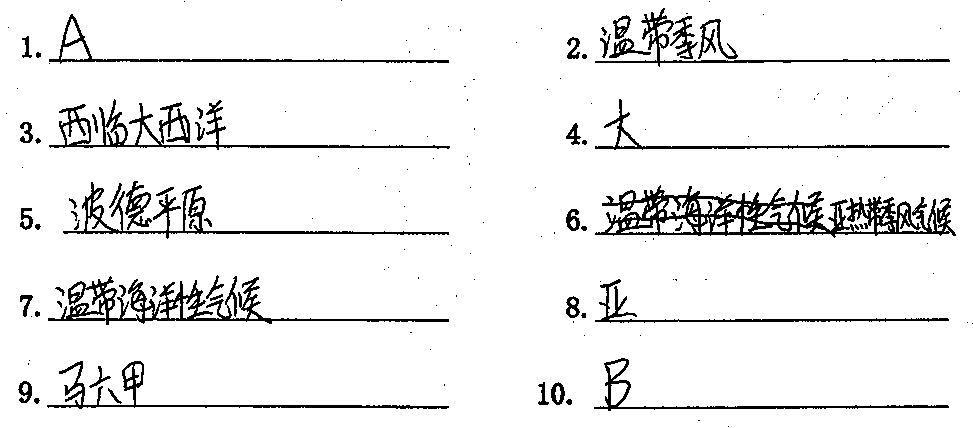 1. A 2. 温带季风
3. 西临大西洋 4. 大
5. 波德平原 6. 温带海洋性气候亚热带季风气候
7. 温带海洋性气候 8. 亚
9. 马六甲 10. B